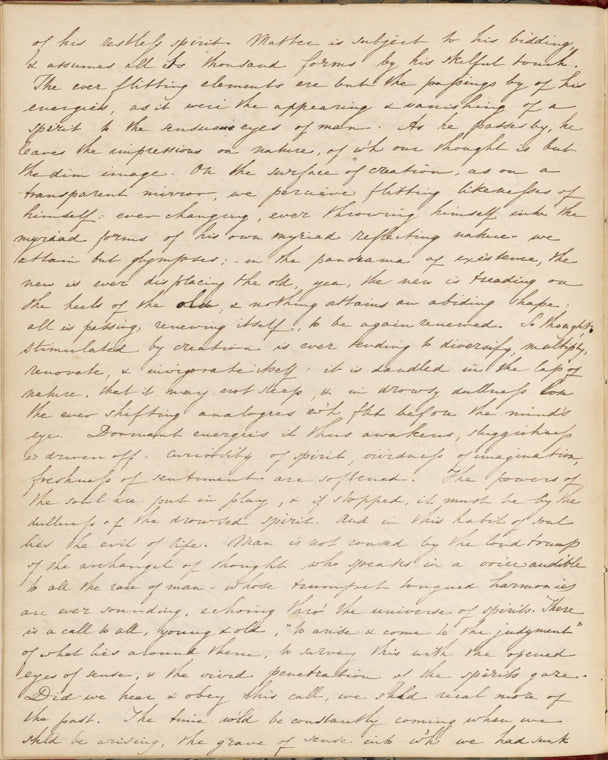 of his restless spirit. Matter is subject to his bidding,
& assumes all its thousand forms by his skilful touch.
The ever flitting elements are but the passings by of his
energies, as it were the appearing & vanishing of a
spirit to the sensuous eyes of man. As he passes by, he
leaves the impressions on nature, of wh our thought is but
the dim image. On the surface of creation, as on a
transparent mirror, we perceive flitting likenesses of
himself: ever changing, ever throwing himself into the
myriad forms of his own myriad reflecting nature. we
attain but glympses; - in the panorama of existence, the
new is ever displacing the old, yea, the new is treading on
the heels of the old, & nothing attains an abiding shape;
all is passing, renewing itself, to be again renewed. So thought
stimulated by creation is ever tending to diversify, multiply,
renovate, & invigorate itself: it is dandled in the lap of
nature, that it may not sleep, & in drowsy dullness
the ever shifting analogies flit before the mind's
eye. Dormant energies it thus awakens, sluggishness
is driven off - curiosity of spirit, vividness of imagination,
freshness of sentiment are softened. The powers of
the soul are put in play, & if stopped, it must be by the
dullness of the drowsed spirit. And in this habit of soul
lies the evil of life. Man is not roused by the loud trump
of the archangel of thought who speaks in a voice audible
to all the race of man - whose trumpet tongued harmonies
are ever sounding, echoing thro' the universe of spirits. There
is a call to all, young & old, "to arise & come to the judgment"
of what lies around them, to survey this with the opened
eyes of sense, & the vivid penetration of the spirits gaze.
Did we hear & obey this call, we shld recal more of
the past. The time wld be constantly coming when we
shld be arising, the grave of sense into wh we had sunk